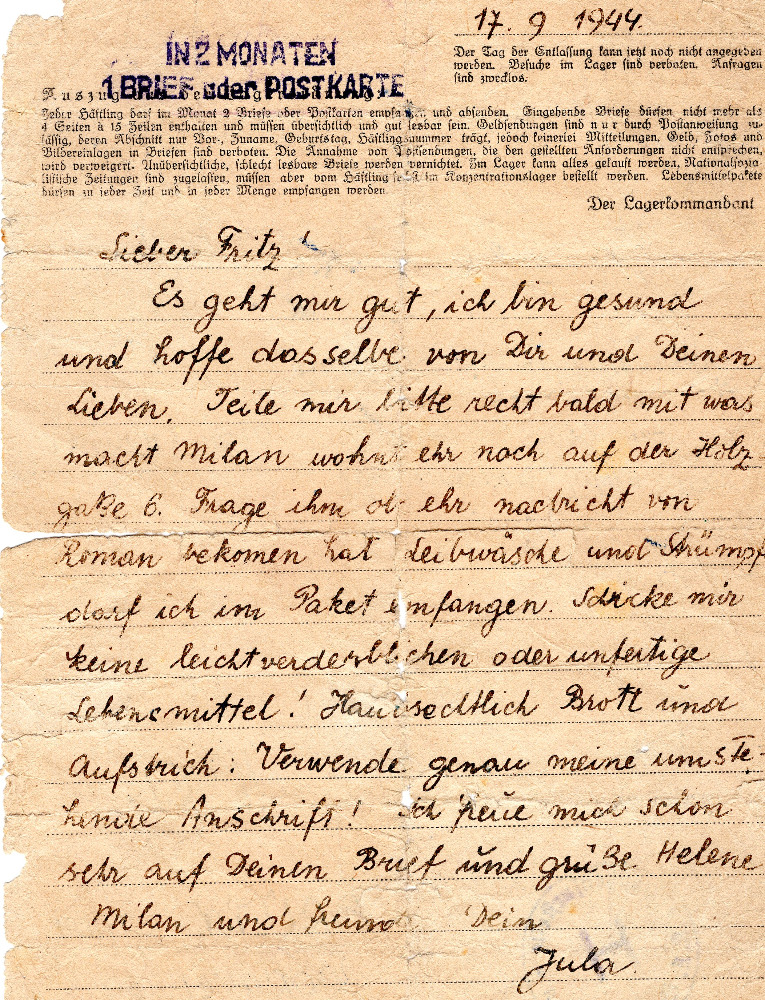 17. 9 1944.
Der Tag der Entlassung kann jetzt noch nicht angegeben
werden. Besuche im Lager sind verboten. Anfragen
sind zwecklos.
IN 2 MONATEN
1 BRIEF oder POSTKARTE
Auszug
Jeder Häftling darf im Monat 2 Briefe oder Postkarten empfangen und absenden. Eingehende Briefe dürfen nicht mehr als
4 Seiten à 15 Zeilen enthalten und müssen übersichtlich und gut lesbar sein. Geldsendungen sind nur durch Postanweisung zu-
lässig, deren Abschnitt nur Vor-, Zuname, Geburtstag, Häftlingsnummer trägt, jedoch keinerlei Mitteilungen. Geld, Fotos und
Bildereinlagen in Briefen sind verboten. Die Annahme von Postsendungen, die den gestellten Anforderungen nicht entsprechen,
wird verweigert. Unübersichtliche, schlecht lesbare Briefe werden vernichtet. Im Lager kann alles gekauft werden. Nationalsozia-
listische Zeitungen sind zugelassen, müssen aber vom Häftling selbst im Konzentrationslager bestellt werden. Lebensmittelpakete
dürfen zu jeder Zeit und in jeder Menge empfangen werden.
Der Lagerkommandant
Lieber Fritz!
Es geht mir gut, ich bin gesund
und hoffe dasselbe von Dir und Deinen
Lieben. Teile mir bitte recht bald mit was
macht Milan wohnt ehr noch auf der Holz-
gaße 6. Frage ihm ob ehr nachricht von
Roman bekomen hat Leibwäsche und Strümpf
darf ich im Paket emfangen. Schicke mir
keine leichtverderblichen oder unfertige
Lebensmittel! Haubsechtlich Brott und
Aufstrich: Verwende genau meine umste-
hende Anschrift! Ich freue mich schon
sehr auf Deinen Brief und grüße Helene
Milan und freund Dein
Jula.